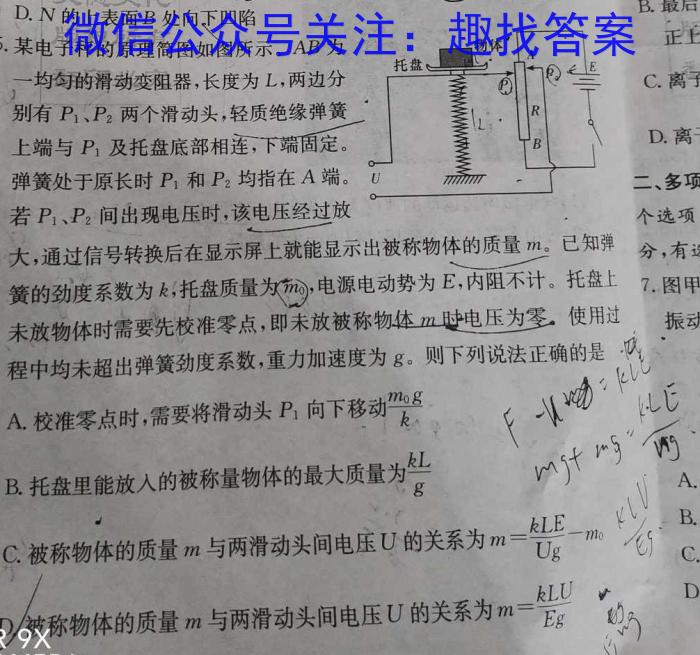 D. N 的上表面B处向下凹陷
微信公众号关注：趣找答案
某电子秤的原理简图如图所示，AB 为
一均匀的滑动变阻器，长度为 L，两边分
别有 P₁、P₂ 两个滑动头，轻质绝缘弹簧
上端与 P₁ 及托盘底部相连，下端固定。
弹簧处于原长时 P₁ 和 P₂ 均指在 A 端。
若 P₁、P₂ 间出现电压时，该电压经过放
大，通过信号转换后在显示屏上就能显示出被称物体的质量 m。已知弹
簧的劲度系数为 k，托盘质量为 m₀，电源电动势为 E，内阻不计。托盘上
未放物体时需要先校准零点，即未放被称物体 m 时电压为零。使用过
程中均未超出弹簧劲度系数，重力加速度为 g。则下列说法正确的是
A. 校准零点时，需要将滑动头 P₁ 向下移动 m₀g/k
B. 托盘里能放入的被称量物体的最大质量为 kL/g
C. 被称物体的质量 m 与两滑动头间电压 U 的关系为 m=kLE/Ug−m₀
D. 被称物体的质量 m 与两滑动头间电压 U 的关系为 m=kLU/Eg
托盘
物体
A
P₁
P₂
E
R
B
U
mg+mg=kLE
kLU/Eg
B. 最后
正上
C. 离子
D. 离子
二、多项
个选项
分，有选
7. 图甲
振动
A.
B.
C.
D
R 9X